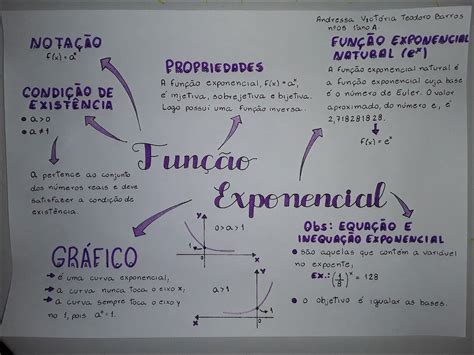 Andressa Victória Teodoro Barros
nº05 1ºano A
NOTAÇÃO
f(x) = aˣ
CONDIÇÃO DE
EXISTÊNCIA
a>0
a≠1
a pertence ao conjunto
dos números reais e deve
satisfazer a condição de
existência.
PROPRIEDADES
A função exponencial, f(x) = aˣ,
é injetiva, sobrejetiva e bijetiva.
Logo possui uma função inversa.
FUNÇÃO EXPONENCIAL
NATURAL (eˣ)
A função exponencial natural é
a função exponencial cuja base
é o número de Euler. O valor
aproximado, do número e, é
2,718281828.
f(x) = eˣ
Função
Exponencial
GRÁFICO
é uma curva exponencial;
a curva nunca toca o eixo x;
a curva sempre toca o eixo y
no 1, pois a⁰ = 1.
y
0>a>1
1
0
x
y
a>1
1
x
0
Obs: EQUAÇÃO E
INEQUAÇÃO EXPONENCIAL
são aquelas que contém a variável
no expoente;
EX.: (1/8)ˣ = 128
o objetivo é igualar as bases.